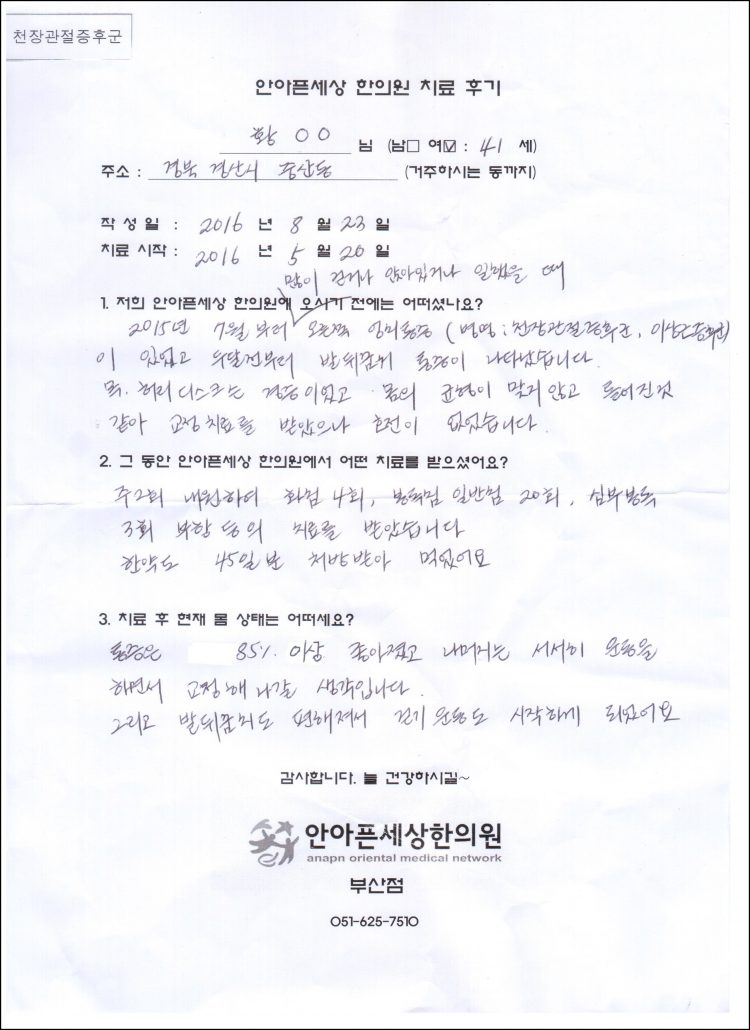 천장관절증후군
안아픈세상 한의원 치료 후기
황 OO 님 (남□ 여☑ : 41 세)
주소 : 경북 경산시 중산동 (거주하시는 동까지)
작성일 : 2016 년 8 월 23 일
치료 시작 : 2016 년 5 월 20 일
많이 걷거나 앉아있거나 일했을 때
1. 저희 안아픈세상 한의원에 오시기 전에는 어떠셨나요?
2015년 7월부터 오른쪽 엉미통증 (병명 : 천장관절증후군, 이상근증후군)
이 있었고 두달전부터 발뒤꿈치 통증이 나타났습니다.
목. 허리디스크는 경증이었고 몸의 균형이 맞지않고 틀어진것
같아 교정치료를 받았으나 호전이 없었습니다.
2. 그 동안 안아픈세상 한의원에서 어떤 치료를 받으셨어요?
주2회 내원하여 화침 4회, 봉독침 일반침 20회, 심부봉독
3회 부항 등의 치료를 받았습니다
한약도 45일분 처방받아 먹었어요
3. 치료 후 현재 몸 상태는 어떠세요?
통증은 85% 이상 좋아졌고 나머지는 서서히 운동을
하면서 교정해 나갈 생각입니다.
그리고 발뒤꿈치도 편해져서 걷기운동도 시작하게 되었어요
감사합니다. 늘 건강하시길~
안아픈세상한의원
anapn oriental medical network
부산점
051-625-7510